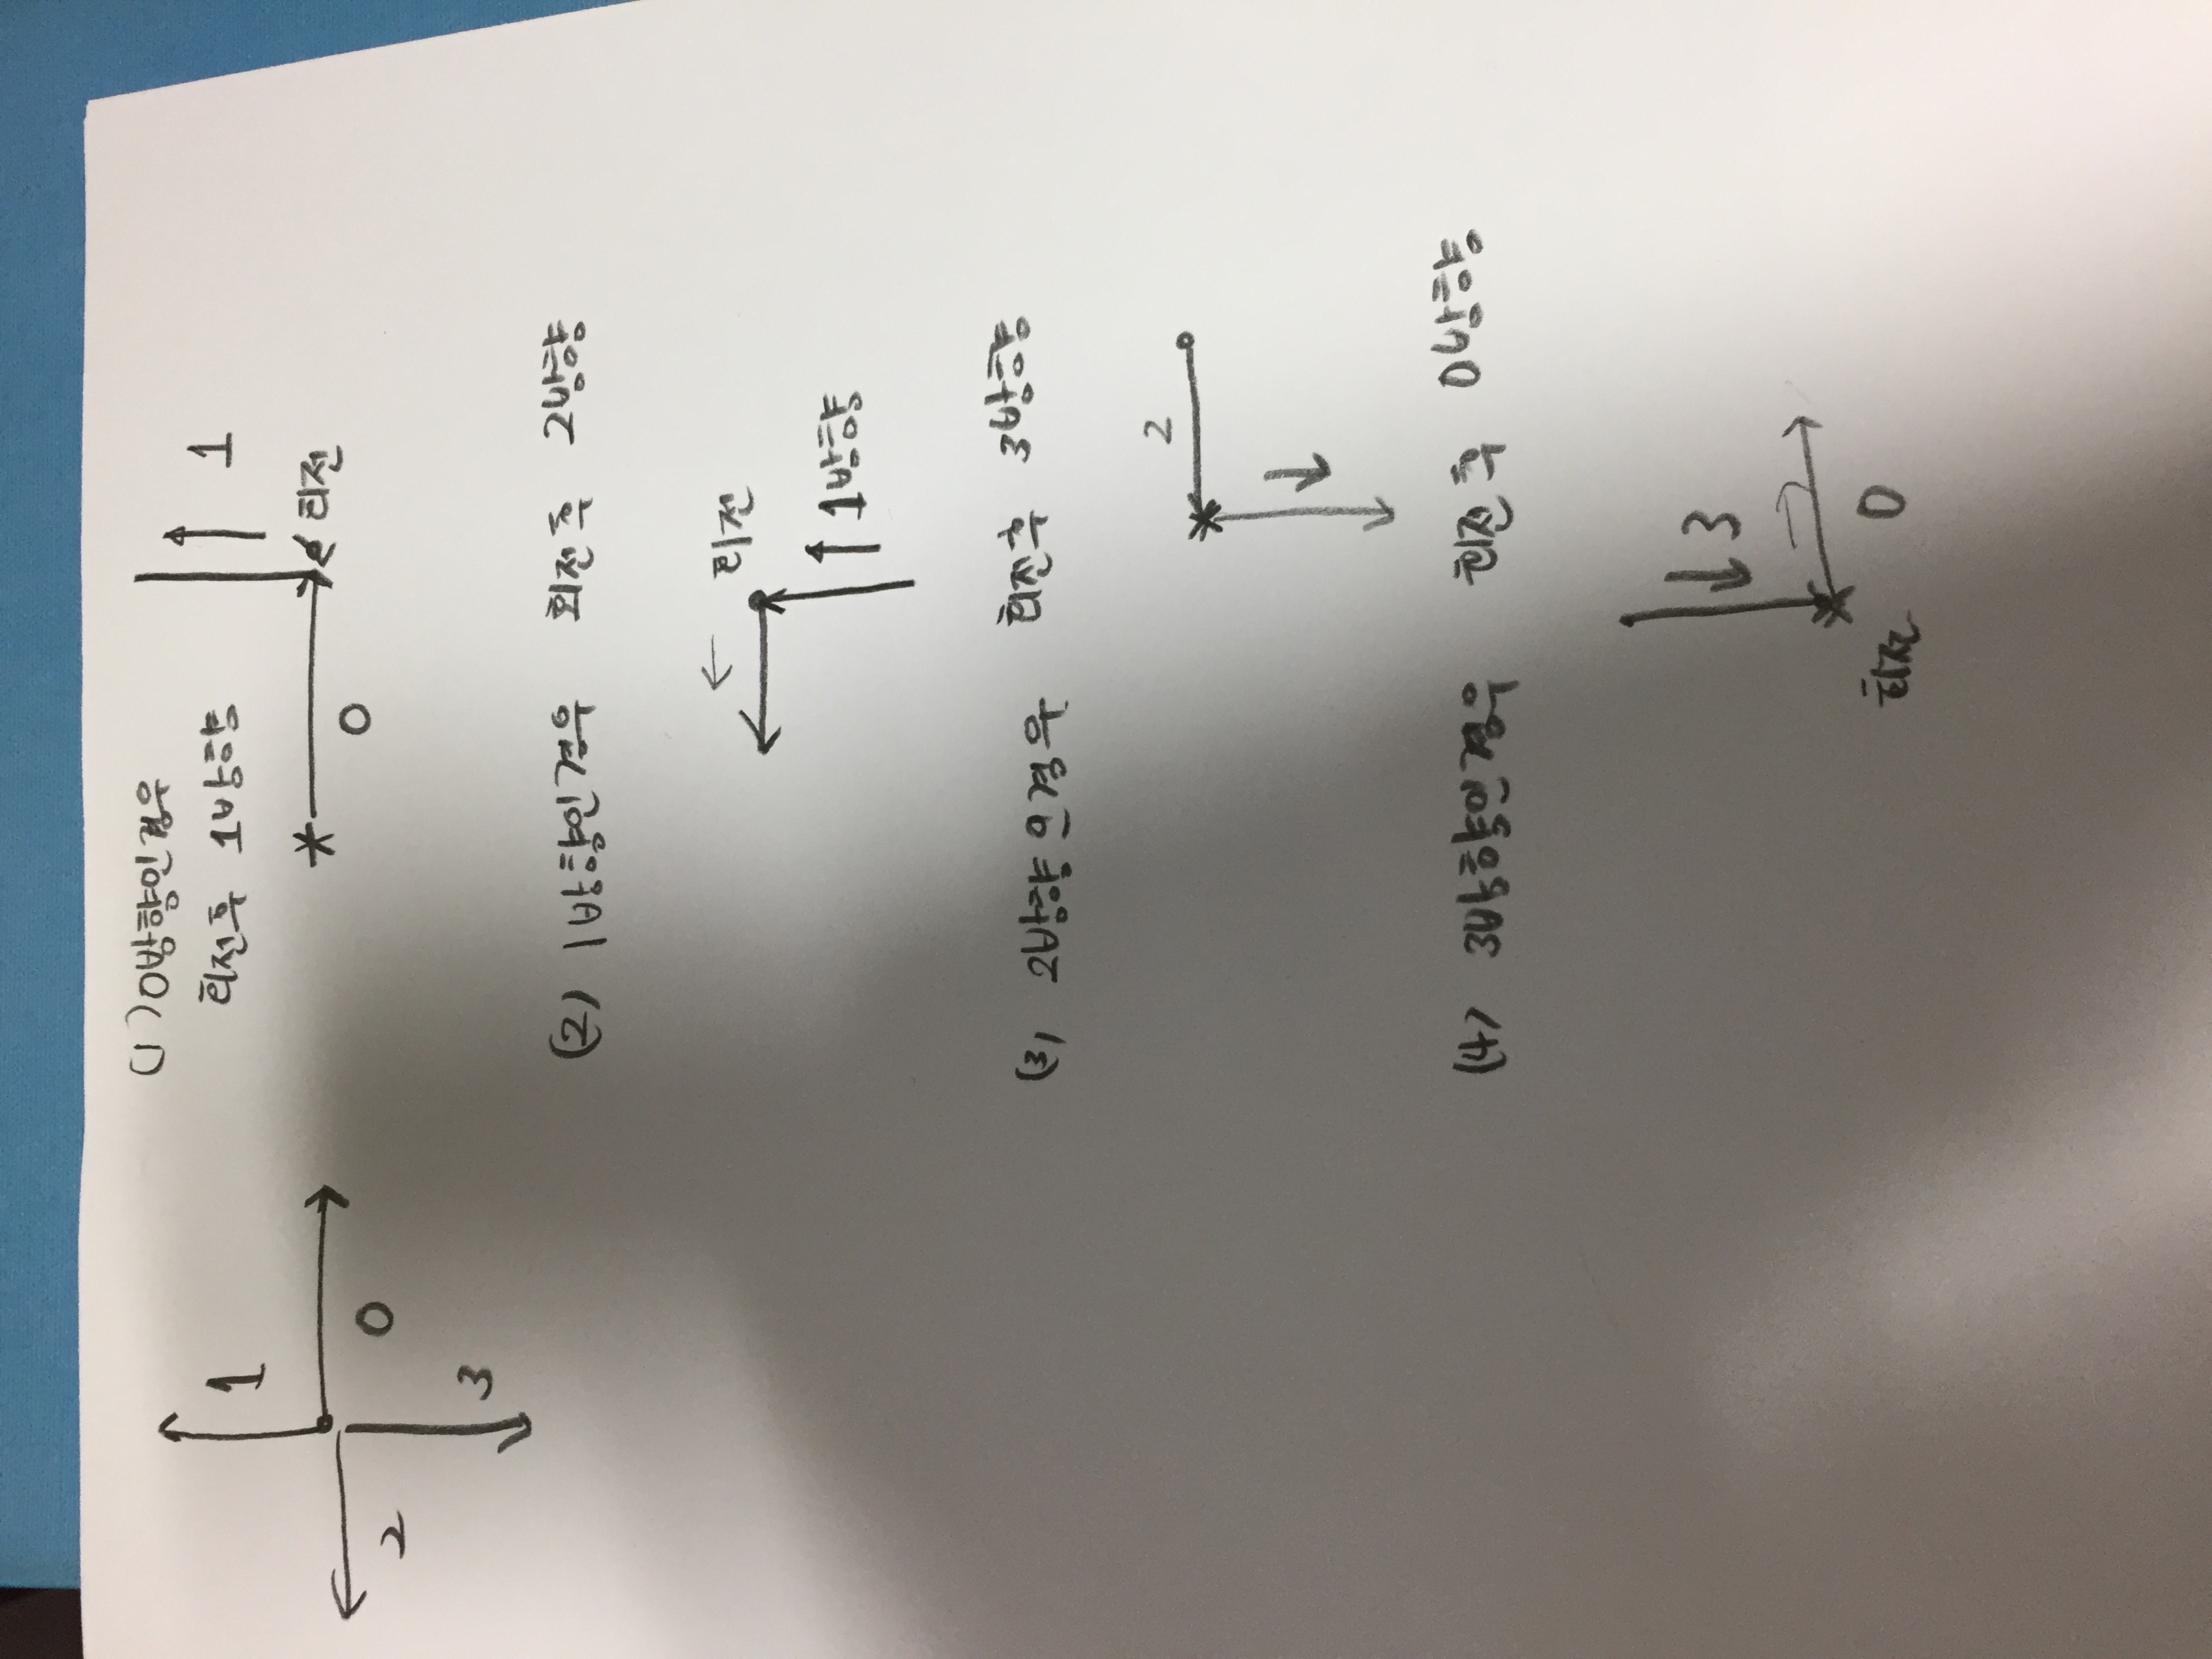 1
2
0
3
(1) 0방향인경우
회전후 1방향
1
회전
0
(2) 1방향인경우 회전후 2방향
회전
1방향
(3) 2방향인경우 회전후 3방향
2
(4) 3방향인경우 회전후 0방향
3
회전
0